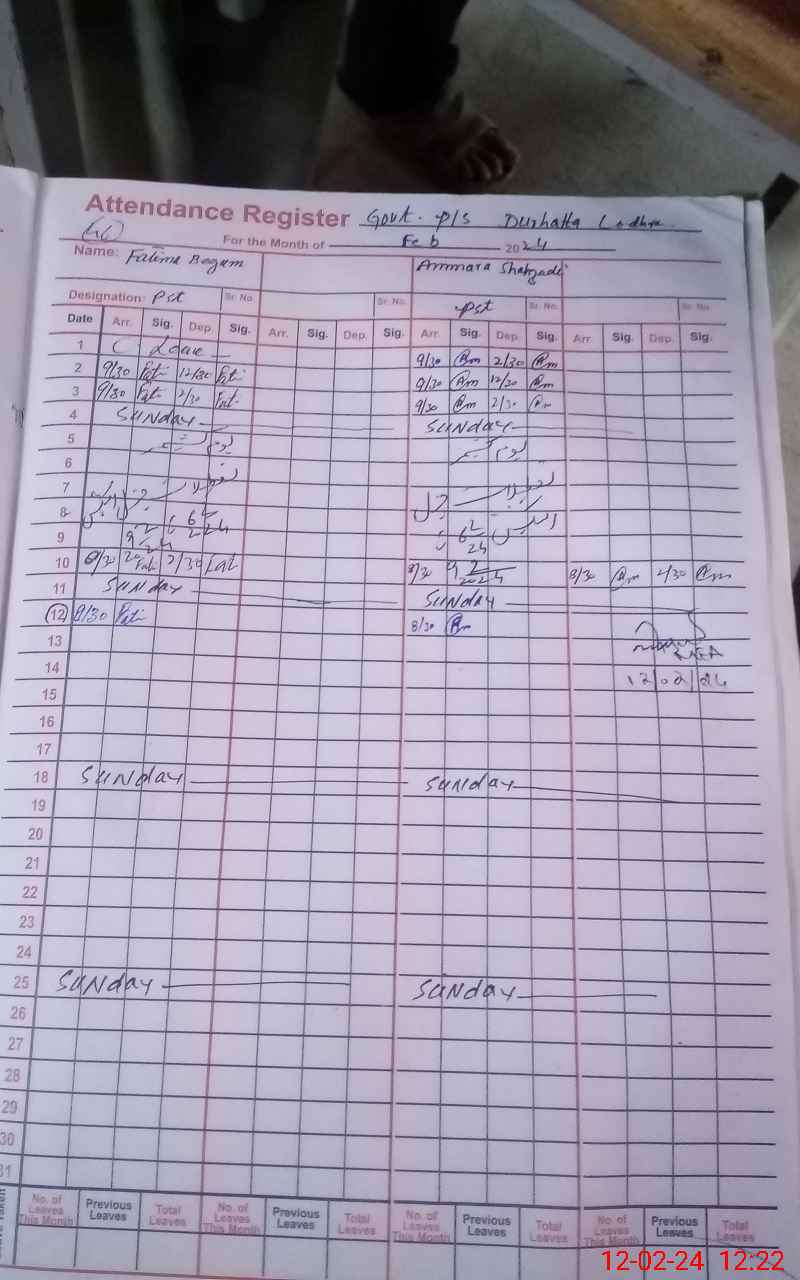 Attendance Register Govt. P/S
For the Month of Feb 2024
Name: Fatima Begum Ammara Shahzadi
Designation: Pst Sr. No. Sr. No. Pst Sr. No. Sr. No.
Date Arr. Sig. Dep. Sig. Arr. Sig. Dep. Sig. Arr. Sig. Dep. Sig. Arr Sig. Dep. Sig.
1 C Leave 9/30 Am 2/30 Am
2 9/30 Fati 12/30 Fati 9/30 Am 12/30 Am
3 9/30 Fati 2/30 Fati 9/30 Am 2/30 Am
4 Sunday Sunday
5 یوم یوم
6
7 تعطیلات تعطیلات
8 الیکشن
9
10 8/30 Fati 2/30 Fati 8/30 8/30 Am 2/30 Am
11 Sunday Sunday
12 8/30 Fati 8/30 Am
13
14
15 12/02/24
16
17
18 Sunday Sunday
19
20
21
22
23
24
25 Sunday Sunday
26
27
28
29
30
31
No. of Leaves This Month Previous Leaves Total Leaves No. of Leaves This Month Previous Leaves Total Leaves No. of Leaves This Month Previous Leaves Total Leaves No. of Leaves This Month Previous Leaves Total Leaves
12-02-24 12:22